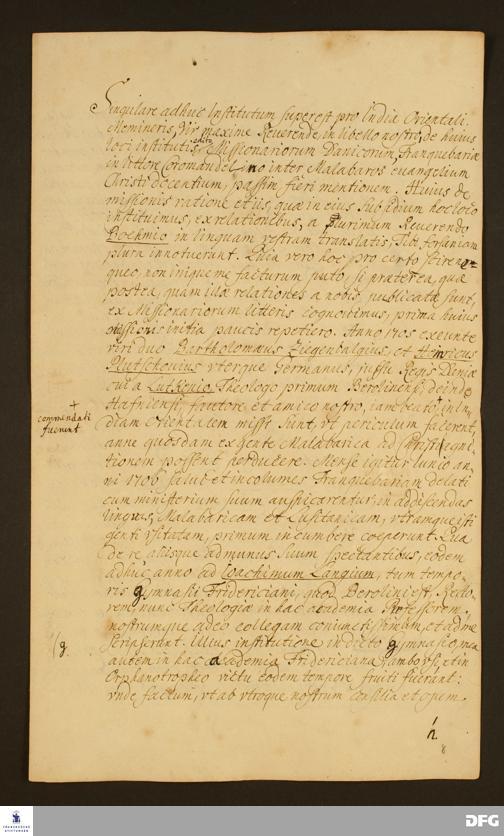 Singulare adhuc Institutum superest pro India Orientali.
Memineris, Vir maxime Reverende, in libello nostro, de huius
loci institutis edito, Missionariorum Danicorum, Tranquebariæ
in littore Coromandelino inter Malabaros euangelium
Christi docentium, passim fieri mentionem. Huius de
missionis ratione et iis, quæ in eius subsidium hoc loco
instituimus, ex relationibus, a plurimum Reuerendo
Boehmio in linguam vestram translatis, Tibi forsaniam
plura innotuerunt. Quia vero hoc pro certo scire ne=
queo, non inique me facturum puto, si præterea, quæ
postea, quam illæ relationes a nobis publicatæ sunt,
ex Missionariorum litteris cognouimus, prima huius
missionis initia paucis repetiero. Anno 1705 exeunte
viri duo Bartholomæus Ziegenbalgius, et Henricus
Plutschouius vterque Germanus, jussu Regis Daniæ
cui a Lutkenio Theologo primum Berolinensi, deinde
Hafniensi, fautore et amico nostro, iam beato + in In-
diam Orientalem missi sunt, vt periculum facerent,
+
commendati
fuerunt
anne quosdam ex gente Malabarica ad Christi agni-
tionem possent perducere. Mense igitur Iunio an-
ni 1706 salui et incolumes Tranquebariam delati
cum ministerium suum auspicarentur, in addiscendas
linguas, Malabaricam et Lusitanicam, vtramque isti
genti vsitatam, primum incumbere coeperunt. Qua
de re aliisque ad munus suum spectantibus, eodem
adhuc anno ad Ioachimum Langium, tum tempo-
ris gymnasii Fridericiani, quod Berolini est, Recto-
rem, nunc Theologiæ in hac academia Professorem,
nostrumque adeo collegam coniunctissimum, et ad me
scripserunt. Illius institutione in dicto gymnasio, mea
/g.
autem in hac academia Fridericiana, ambo vsi etin
Orphanotropheo victu eodem tempore fruiti fuerant:
vnde factum, vt ab vtroque nostrum consilia et opem
n
8
FRANCKESCHE
STIFTUNGEN
DFG